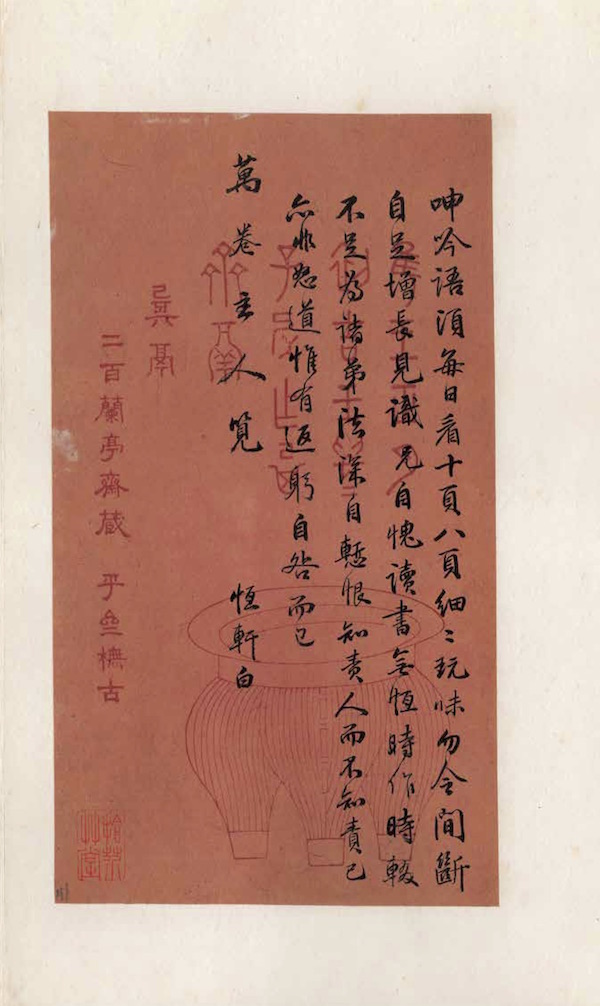 呻吟語須每日看十頁八頁細〻玩味勿令間斷
自足增長見識兄自愧讀書無恆時作時輟
不足為諸弟法深自慙恨知責人而不知責己
亦非恕道惟有返躬自咎而已
萬卷主人覽
恆軒白
二百蘭亭齋藏 橅古